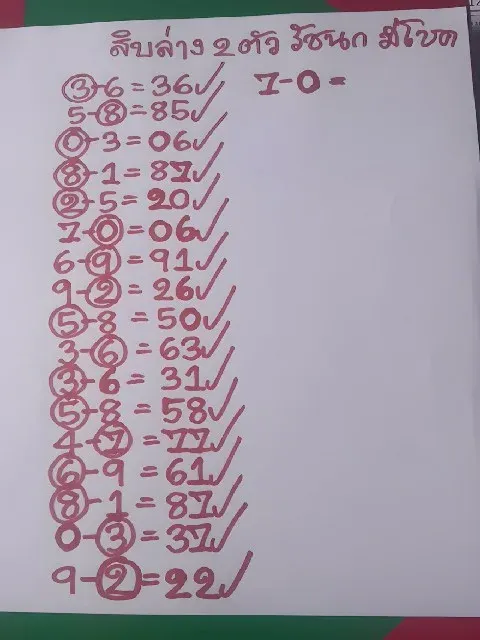 สิบล่าง 2 ตัว รัชนก มีโชค
3-6=36✓
7-0=
5-8=85✓
0-3=06✓
8-1=87✓
2-5=20✓
7-0=06✓
6-9=91✓
9-2=26✓
5-8=50✓
3-6=63✓
3-6=31✓
5-8=58✓
4-7=77✓
6-9=61✓
8-1=87✓
0-3=37✓
9-2=22✓